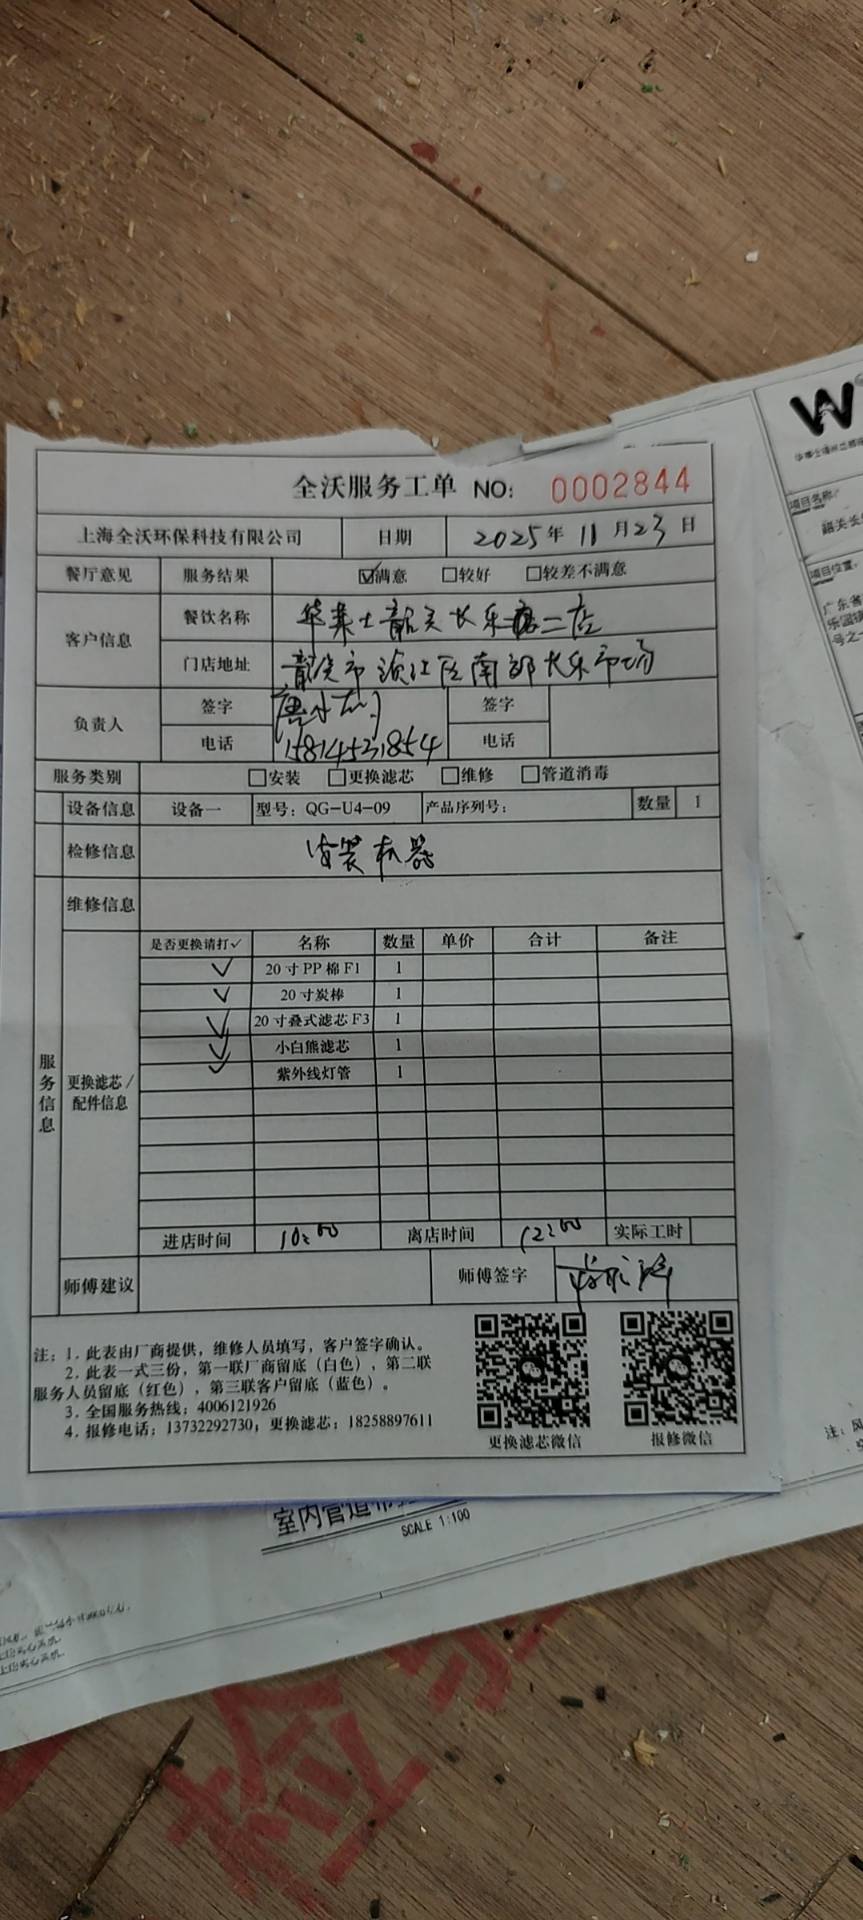 全沃服务工单 NO: 0002844
上海全沃环保科技有限公司 日期 2025年 11月23日
餐厅意见 服务结果 ☑满意 □较好 □较差不满意
客户信息 餐饮名称 华莱士韶关长乐二店
门店地址 韶关市浈江区南郊长乐市场
负责人 签字 签字
电话 15814531854 电话
服务类别 □安装 □更换滤芯 □维修 □管道消毒
设备信息 设备一 型号: QG-U4-09 产品序列号: 数量 1
检修信息 安装机器
维修信息
服务信息
更换滤芯/配件信息
是否更换请打✓ 名称 数量 单价 合计 备注
✓ 20寸PP棉F1 1
✓ 20寸炭棒 1
✓ 20寸叠式滤芯F3 1
✓ 小白熊滤芯 1
✓ 紫外线灯管 1
进店时间 10:00 离店时间 12:00 实际工时
师傅建议 师傅签字
注: 1. 此表由厂商提供, 维修人员填写, 客户签字确认。
2. 此表一式三份, 第一联厂商留底(白色), 第二联
服务人员留底(红色), 第三联客户留底(蓝色)。
3. 全国服务热线: 4006121926
4. 报修电话: 13732292730, 更换滤芯: 18258897611
更换滤芯微信 报修微信
W
项目名称
韶关长
项目位置:
广东省
乐园镇
号之一
注: 风
室内管道
SCALE 1:100